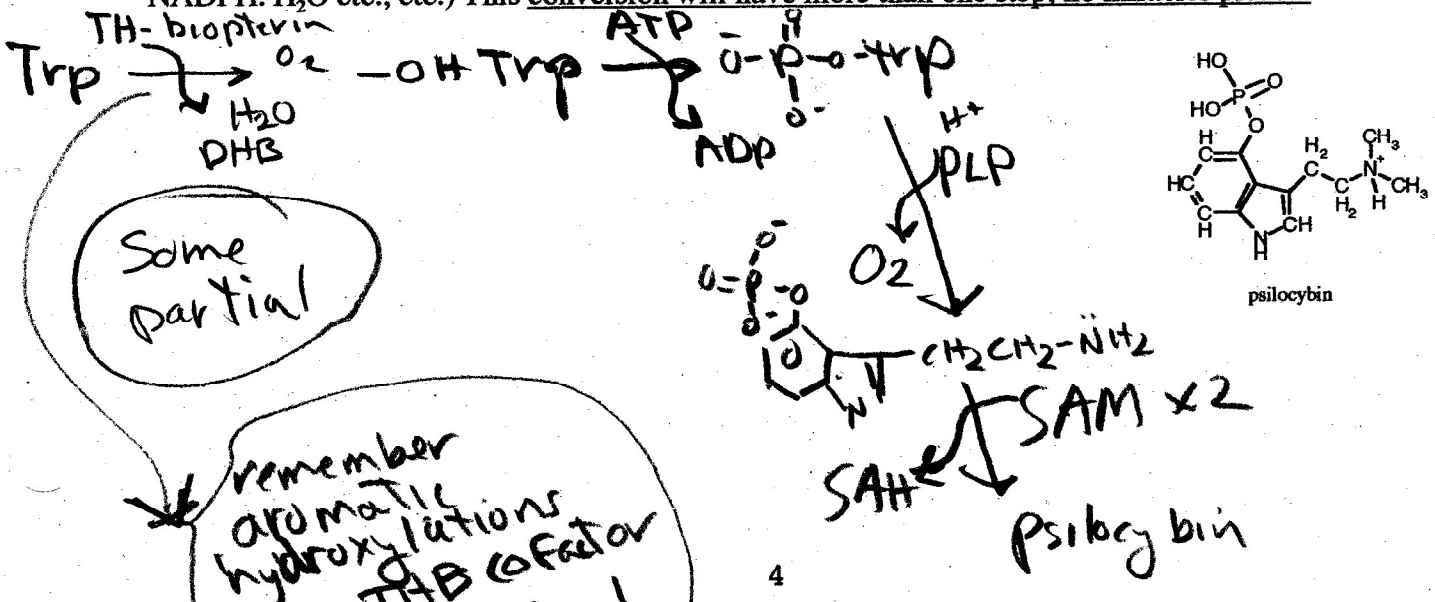 NADPH. H₂O etc., etc.) This conversion will have more than one step,
TH-biopterin
Trp → O₂ -OH Trp → ATP ⁻O-P-O-trp
O
O⁻
H₂O
DHB
ADP
H⁺
PLP
O₂
Some
partial
O⁻
O=P-O
O⁻
O
N
CH₂CH₂-N̈H₂
SAM x2
SAH
psilocybin
remember
aromatic
hydroxylations
THB cofactor
4
HO
HO P O
O
H
HC
C
H
C
H
N
H
CH
H₂
C
C
H₂
CH₃
N⁺
H
CH₃
psilocybin